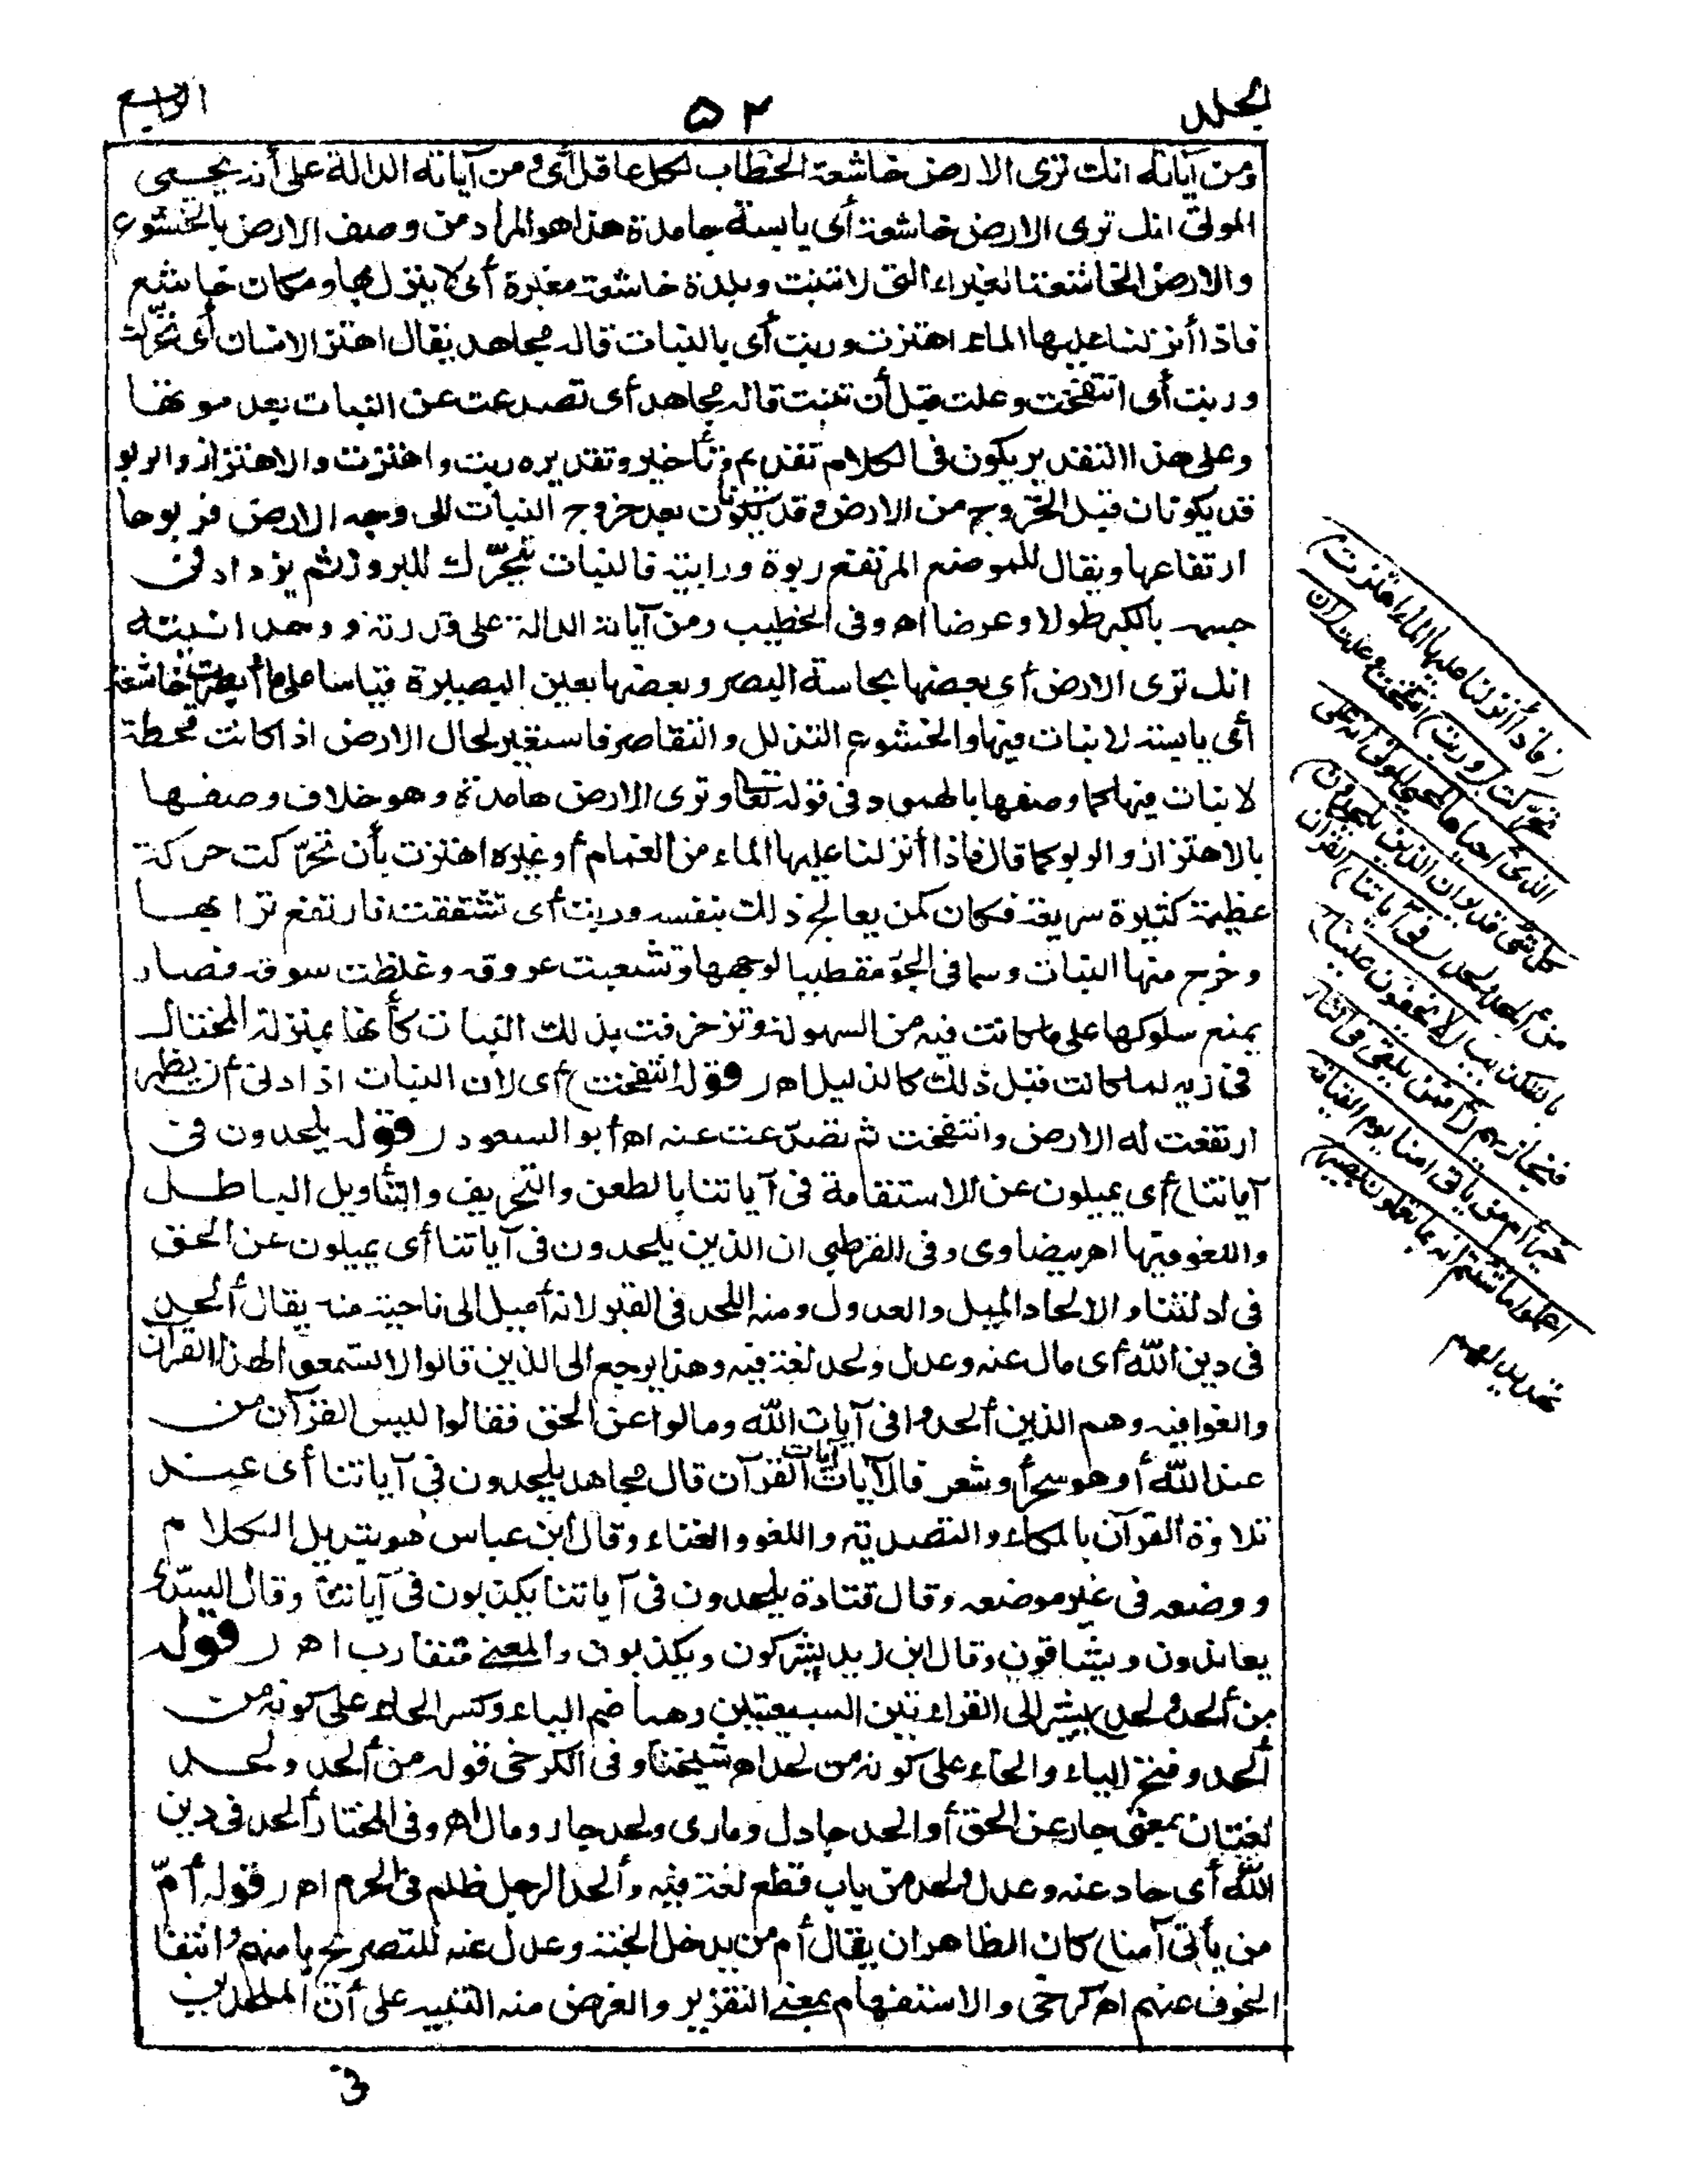 الجلد ٥٢ الرابع
ومن آياته انك ترى الارض خاشعة الخطاب لكل عاقل أى ومن آياته الدالة على أنه يحيى
الموتى انك ترى الارض خاشعة أى يابسة جامدة هذا هو المراد من وصف الارض بالخشوع
والارض الخاشعة الغبراء التى لا تنبت وبلدة خاشعة مغبرة أى لا ينزل بها ومكان خاشع
فاذا أنزلنا عليها الماء اهتزت وربت أى بالنبات قاله مجاهد يقال اهتز الانسان أى تحرّك
وربت أى انتفخت وعلت قبل أن تنبت قاله مجاهد أى تصدعت عن النبات بعد موتها
وعلى هذا التقدير يكون فى الكلام تقديم وتأخير وتقديره ربت واهتزت والاهتزاز والربو
قد يكونان قبل الخروج من الارض وقد يكونان بعد خروج النبات الى وجه الارض فربوها
ارتفاعها ويقال للموضع المرتفع ربوة ورابية فالنبات يتحرّك للبروز ثم يزداد فى
جسمه بالكبر طولا وعرضا اهـ وفى الخطيب ومن آياته الدالة على قدرته ووحدانيته
انك ترى الارض أى بعضها بحاسة البصر وبعضها بعين البصيرة قياسا على ما أبصرت خاشعة
أى يابسة لا نبات فيها والخشوع التذلل والتقاصر فاستعير لحال الارض اذا كانت قحطة
لا نبات فيها كما وصفها بالهمود فى قوله تعالى وترى الارض هامدة وهو خلاف وصفها
بالاهتزاز والربو كما قال فاذا أنزلنا عليها الماء من الغمام أو غيره اهتزت بأن تحرّكت حركة
عظيمة كثيرة سريعة فكان كمن يعالج ذلك بنفسه وربت أى تشققت فارتفع ترابها
وخرج منها النبات وسما فى الجوّ مغطيا لوجهها وتشعبت عروقه وغلظت سوقه فصار
يمنع سلوكها على ما كانت فيه من السهولة وتزخرفت بذلك النبات كأنها بمنزلة المختال
فى زيه لما كانت قبل ذلك كالذليل اهـ (قوله انتفخت) أى لان النبات اذا دنى أن يظهر
ارتفعت له الارض وانتفخت ثم تصدّعت عنه اهـ أبو السعود (قوله يلحدون فى
آياتنا) أى يميلون عن الاستقامة فى آياتنا بالطعن والتحريف والتأويل الباطل
واللغو فيها اهـ بيضاوى وفى القرطبى ان الذين يلحدون فى آياتنا أى يميلون عن الحق
فى ادلتنا والالحاد الميل والعدول ومنه اللحد فى القبر لانه أميل الى ناحية منه يقال ألحد
فى دين الله أى مال عنه وعدل ولحد لغة فيه وهذا يرجع الى الذين قالوا لا تسمعوا لهذا القرآن
والغوا فيه وهم الذين ألحدوا فى آيات الله ومالوا عن الحق فقالوا ليس القرآن من
عند الله أو هو سحر أو شعر فالآيات آيات القرآن قال مجاهد يلحدون فى آياتنا أى عند
تلاوة القرآن بالمكاء والتصدية واللغو والغناء وقال ابن عباس هو تبديل الكلام
ووضعه فى غير موضعه وقال قتادة يلحدون فى آياتنا يكذبون فى آياتنا وقال السدّى
يعاندون ويشاقون وقال ابن زيد يشركون ويكذبون والمعنى متقارب اهـ (قوله
من ألحد ولحد) يشير الى القراءتين السبعيتين وهما ضم الياء وكسر الحاء على كونه من
ألحد وفتح الياء والحاء على كونه من لحد اهـ شيخنا وفى الكرخى قوله من ألحد ولحد
لغتان بمعنى جار عن الحق أو ألحد جادل ومارى ولحد جار ومال اهـ وفى المختار ألحد فى دين
الله أى حاد عنه وعدل ولحد من باب قطع لغة فيه وألحد الرجل ظلم فى الحرم اهـ (قوله أم
من يأتى آمنا) كان الظاهر ان يقال أم من يدخل الجنة وعدل عنه للتصريح بامنهم وانتفا
الخوف عنهم اهـ كرخى والاستفهام بمعنى التقرير والغرض منه التنبيه على أن الملحدين
(فاذا أنزلنا عليها الماء اهتزت)
تحرّكت (وربت) انتفخت وعلت (ان
الذى أحياها لمحيى الموتى انه على
كل شئ قدير ان الذين يلحدون)
من ألحد ولحد (فى آياتنا) القرآن
بالتكذيب (لا يخفون علينا)
فنجازيهم (أفمن يلقى فى النار
خير أم من يأتى آمنا يوم القيامة
اعملوا ما شئتم انه بما تعملون بصير)
تهديد لهم